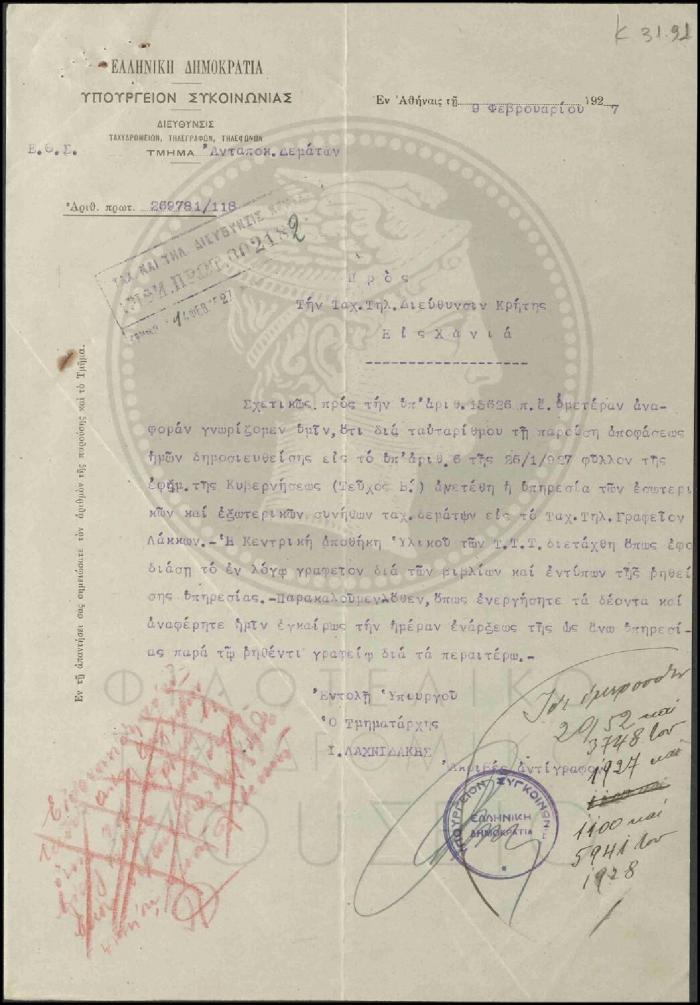 Κ 31.91
ΕΛΛΗΝΙΚΗ ΔΗΜΟΚΡΑΤΙΑ
ΥΠΟΥΡΓΕΙΟΝ ΣΥΚΟΙΝΩΝΙΑΣ
Ἐν Ἀθήναις τῇ 9 Φεβρουαρίου 1927
ΔΙΕΥΘΥΝΣΙΣ
ΤΑΧΥΔΡΟΜΕΙΩΝ, ΤΗΛΕΓΡΑΦΩΝ, ΤΗΛΕΦΩΝΩΝ
Ε.Θ.Σ. ΤΜΗΜΑ Ἀνταποκ.Δεμάτων
Ἀριθ. πρωτ. 269781/118
ΤΑΧ. ΚΑΙ ΤΗΛ. ΔΙΕΥΘΥΝΣΙΣ
ΠΡΩΤ. 002182
14 ΦΕΒ 27
Πρὸς
Τήν Ταχ.Τηλ.Διεύθυνσιν Κρήτης
Εἰς Χανιά
Σχετικῶς πρός τήν ὑπ'ἀριθ.15626 π.ἔ.ὑμετέραν ἀνα-
φοράν γνωρίζομεν ὑμῖν, ὅτι διά ταὐταρίθμου τῇ παρούσῃ ἀποφάσεως
ἡμῶν δημοσιευθείσης εἰς τό ὑπ'ἀριθ. 6 τῆς 26/1/927 φύλλον τῆς
ἐφημ.τῆς Κυβερνήσεως (Τεῦχος Β.) ἀνετέθη ἡ ὑπηρεσία τῶν ἐσωτερι-
κῶν καί ἐξωτερικῶν συνήθων ταχ.δεμάτων εἰς τό Ταχ.Τηλ.Γραφεῖον
Λάκκων.-Ἡ Κεντρική Ἀποθήκη Ὑλικοῦ τῶν Τ.Τ.Τ. διετάχθη ὅπως ἐφο
διάσῃ τό ἐν λόγῳ γραφεῖον διά τῶν βιβλίων καί ἐντύπων τῆς ῥηθεί
σης ὑπηρεσίας.-Παρακαλοῦμεν λόθεν, ὅπως ἐνεργήσητε τά δέοντα καί
ἀναφέρητε ἡμῖν ἐγκαίρως τήν ἡμέραν ἐνάρξεως τῆς ὡς ἄνω ὑπηρεσί-
ας παρά τῷ ῥηθέντι γραφείῳ διά τά περαιτέρω.-
Ἐν τῇ ἀπαντήσει σας σημειώσατε τὸν ἀριθμὸν τῆς παρούσης καὶ τὸ Τμῆμα.
Ἐντολῇ Ὑπουργοῦ
Ὁ Τμηματάρχης
Ι.ΛΑΧΝΙΔΑΚΗΣ
Ἀκριβές ἀντίγραφον
ΥΠΟΥΡΓΕΙΟΝ ΣΥΓΚΟΙΝΩΝ
ΕΛΛΗΝΙΚΗ
ΔΗΜΟΚΡΑΤΙΑ
2952 καὶ
3748 του
1927 καὶ
1100 καὶ
5941 του
1928
ΦΙΛΟΤΕΛΙΚΟ
ΤΑΧΥΔΡΟΜΙΚΟ
ΜΟΥΣΕΙΟ